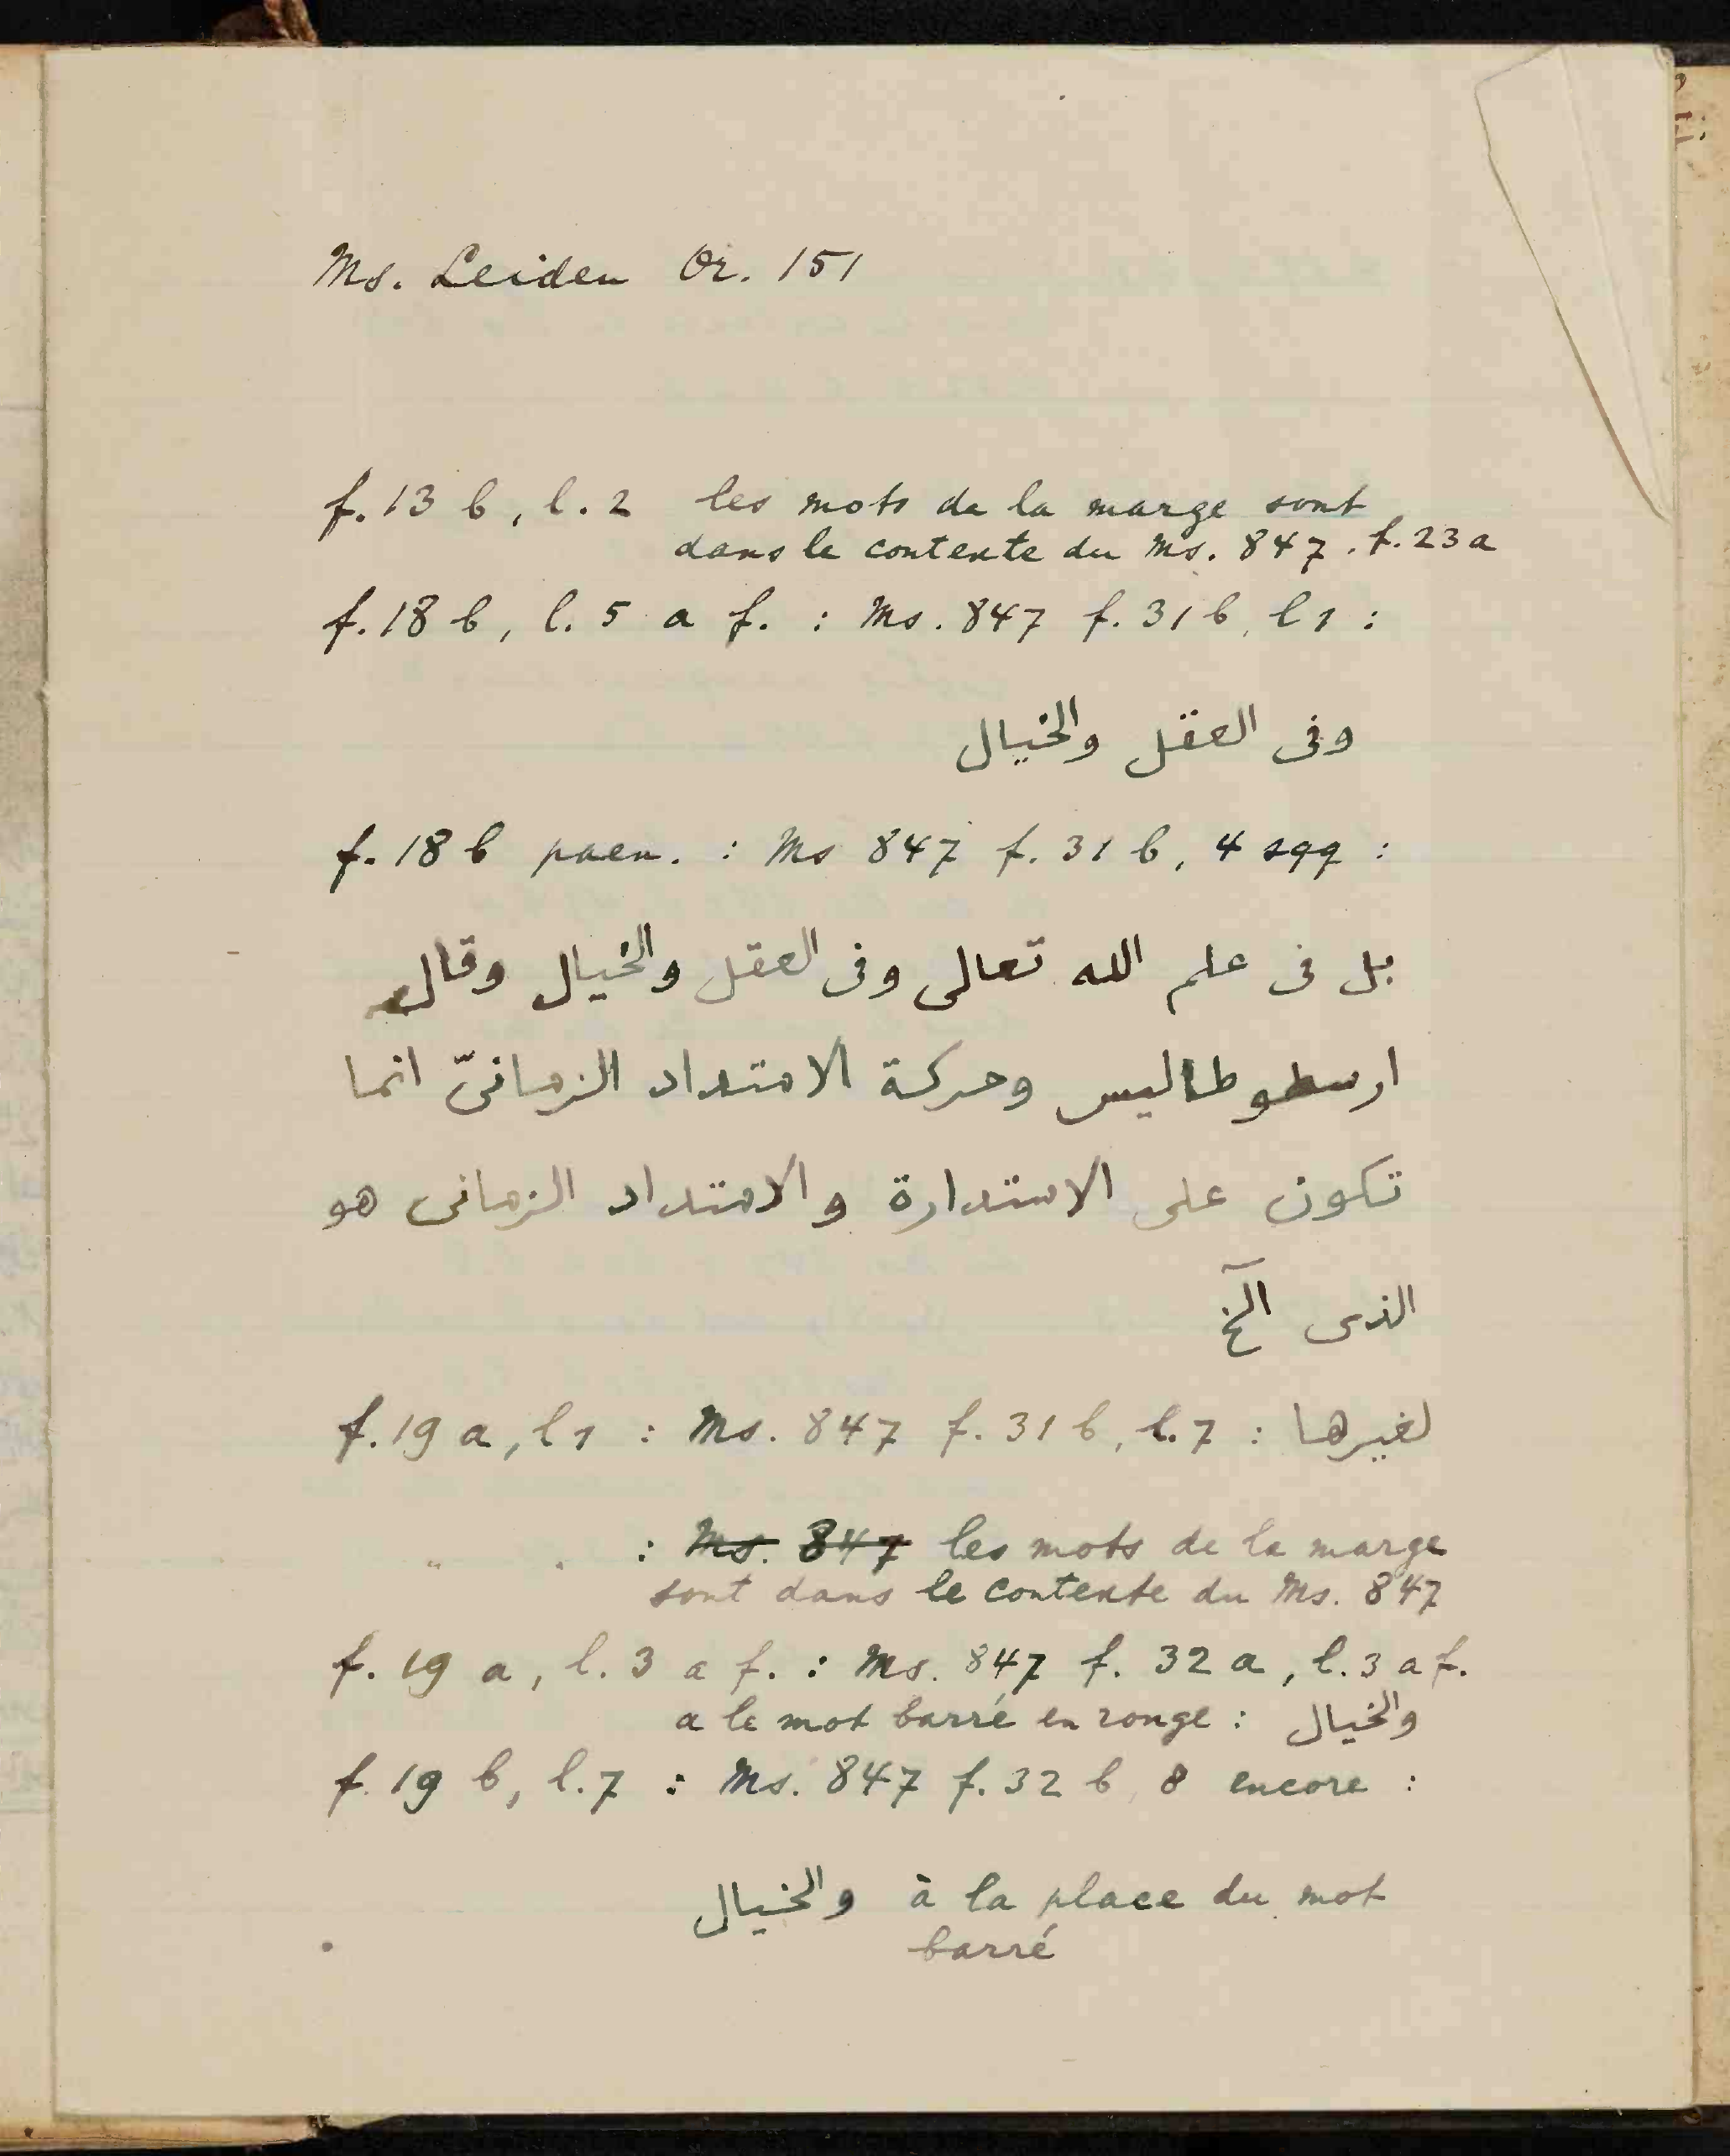 Ms. Leiden Or. 151
f. 13 b, l. 2 les mots de la marge sont
dans le contexte du Ms. 847, f. 23 a
f. 18 b, l. 5 a f. : Ms. 847 f. 31 b, l 1 :
وفى العقل والخيال
f. 18 b paen. : Ms 847 f. 31 b, 4 sqq :
بل فى علم الله تعالى وفى العقل والخيال وقال
ارسطوطاليس وحركة الامتداد الزمانىّ انما
تكون على الاستدارة والامتداد الزمانى هو
الذى الخ
f. 19 a, l 1 : Ms. 847 f. 31 b, l. 7 : لغيرها
" " : Ms. 847 les mots de la marge
sont dans le contexte du Ms. 847
f. 19 a, l. 3 a f. : Ms. 847 f. 32 a, l. 3 a f.
a le mot barré en rouge : والخيال
f. 19 b, l. 7 : Ms. 847 f. 32 b, 8 encore :
والخيال à la place du mot
barré